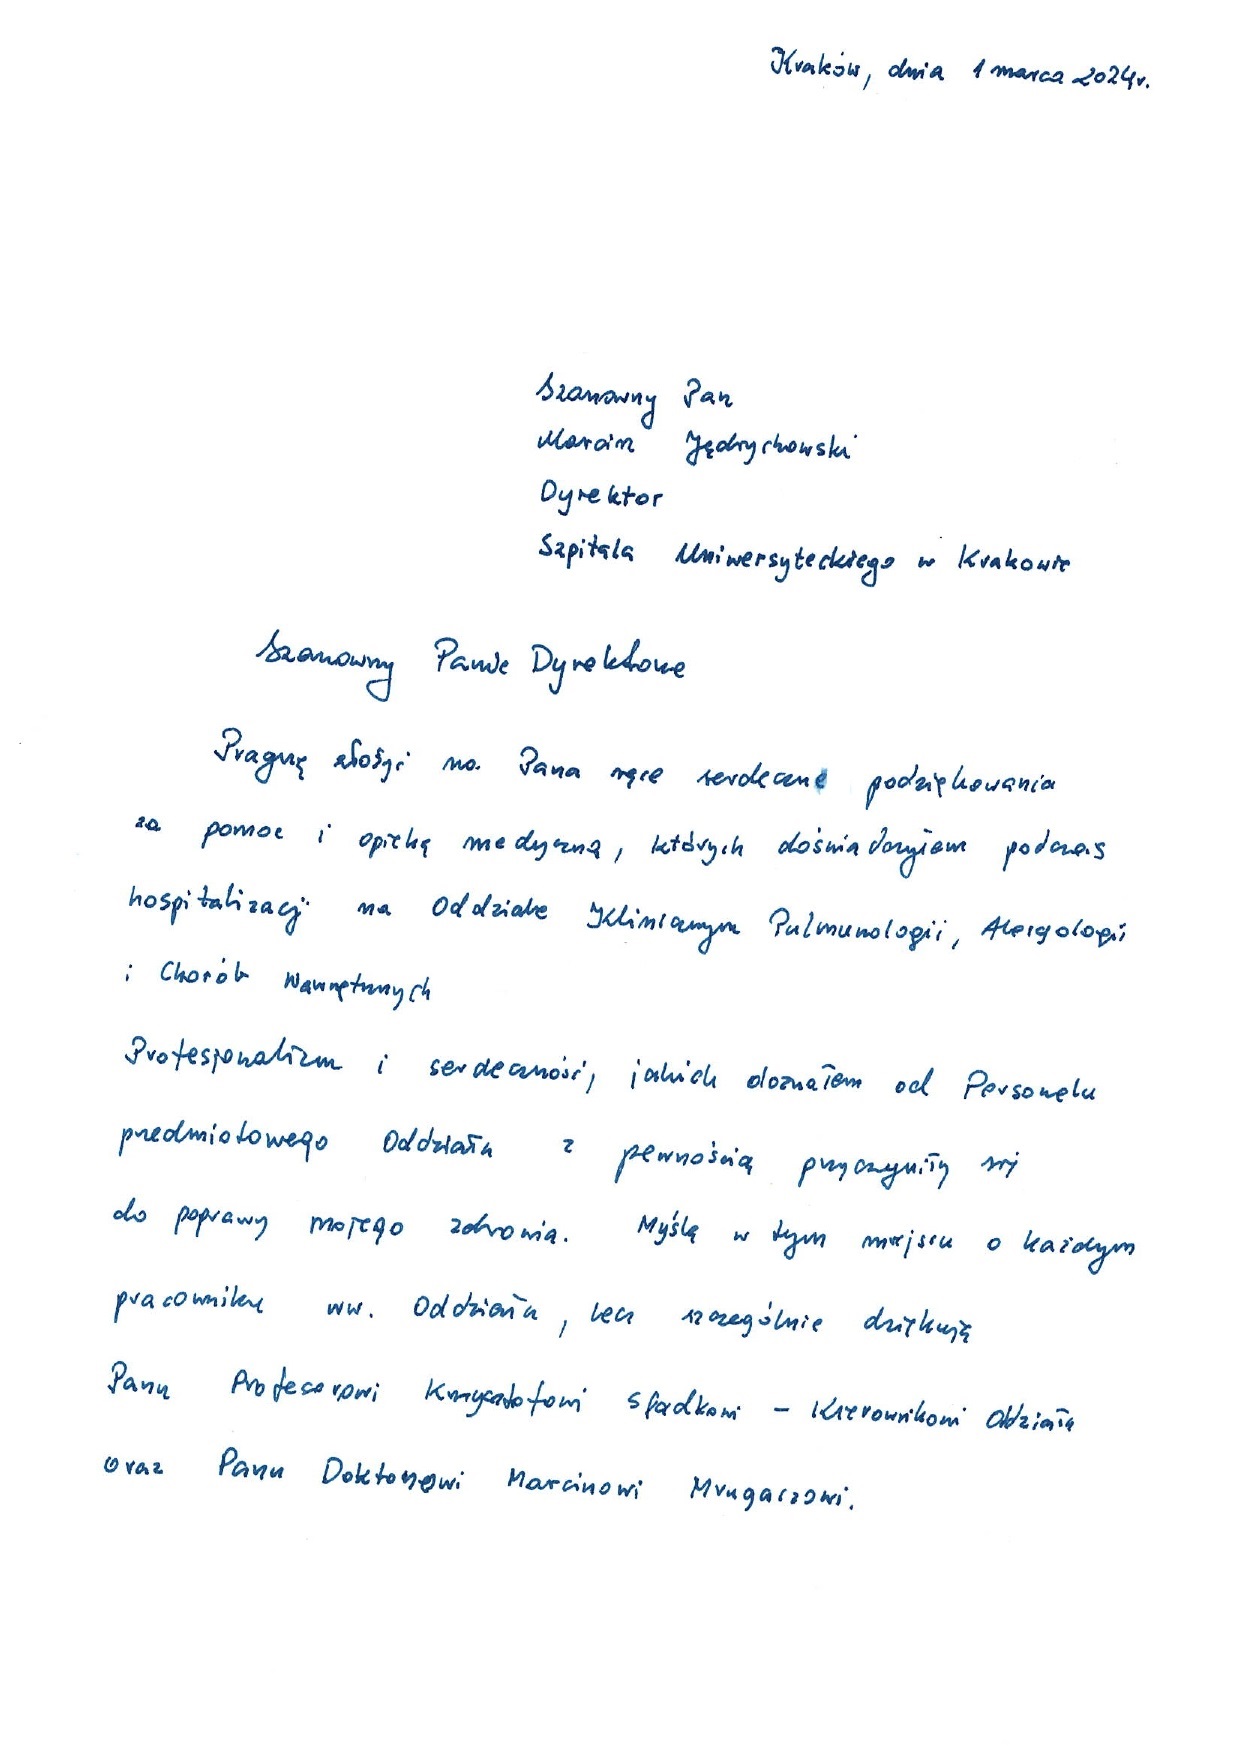 Kraków, dnia 1 marca 2024r.
Szanowny Pan
Marcin Jędrychowski
Dyrektor
Szpitala Uniwersyteckiego w Krakowie
Szanowny Panie Dyrektorze
Pragnę złożyć na Pana ręce serdeczne podziękowania
za pomoc i opiekę medyczną, których doświadczyłem podczas
hospitalizacji na Oddziale Klinicznym Pulmunologii, Alergologii
i Chorób Wewnętrznych
Profesjonalizm i serdeczność, jakich doznałem od Personelu
przedmiotowego Oddziału z pewnością przyczyniły się
do poprawy mojego zdrowia. Myślę w tym miejscu o każdym
pracowniku ww. Oddziału, lecz szczególnie dziękuję
Panu Profesorowi Krzysztofowi Sładkowi - Kierownikowi Oddziału
oraz Panu Doktorowi Marcinowi Mrugaczowi.